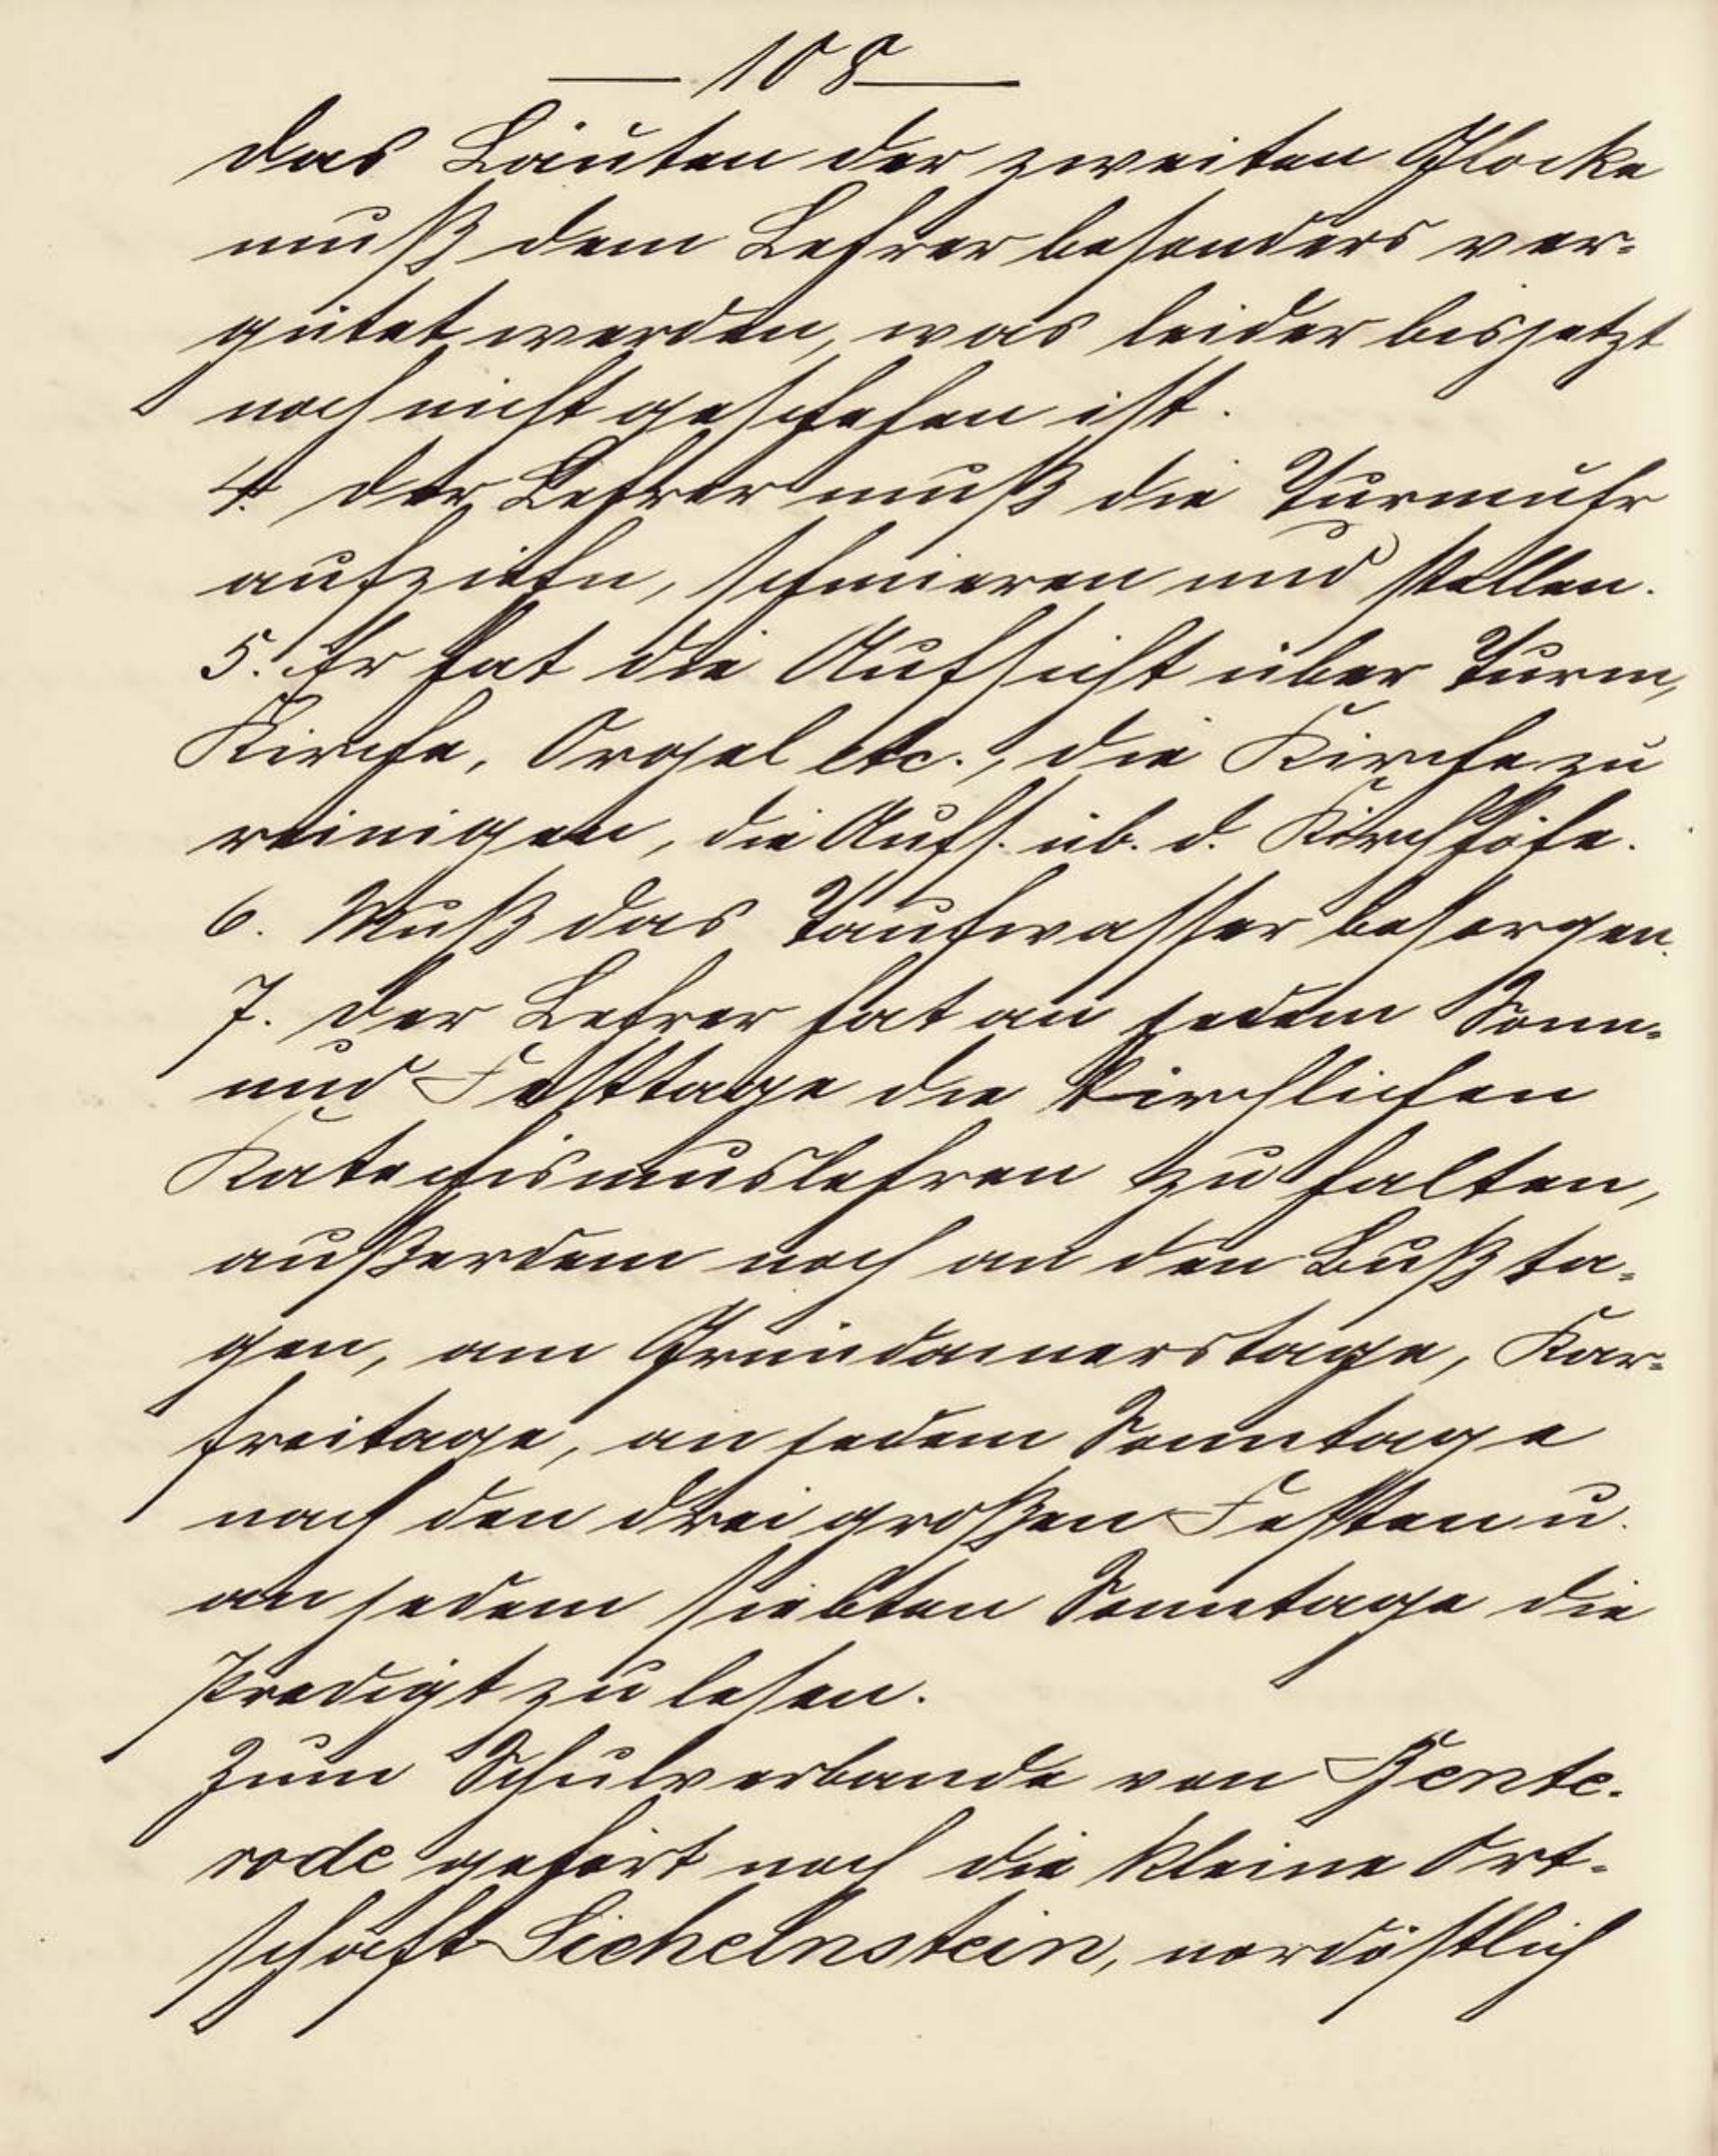 — 108 —
das Läuten der zweiten Glocke
muß dem Lehrer besonders ver-
gütet werden, was leider bis jetzt
noch nicht geschehen ist.
4. der Lehrer muß die Turmuhr
aufziehn, schmieren und stellen.
5. Er hat die Aufsicht über Turm,
Kirche, Orgel etc., die Kirche zu
reinigen, die Aufs. üb. d. Kirchhöfe.
6. Muß das Taufwasser besorgen.
7. der Lehrer hat an jedem Sonn-
und Festtage die kirchlichen
Katechismuslehren zu halten,
außerdem noch an den Bußta-
gen, am Gründonnerstage, Kar-
freitage, an jedem Sonntage
nach den drei großen Festen u.
an jedem siebten Sonntage die
Predigt zu lesen.
Zum Schulverbande von Bente-
rode gehört noch die kleine Ort-
schaft Sichelnstein, nordöstlich